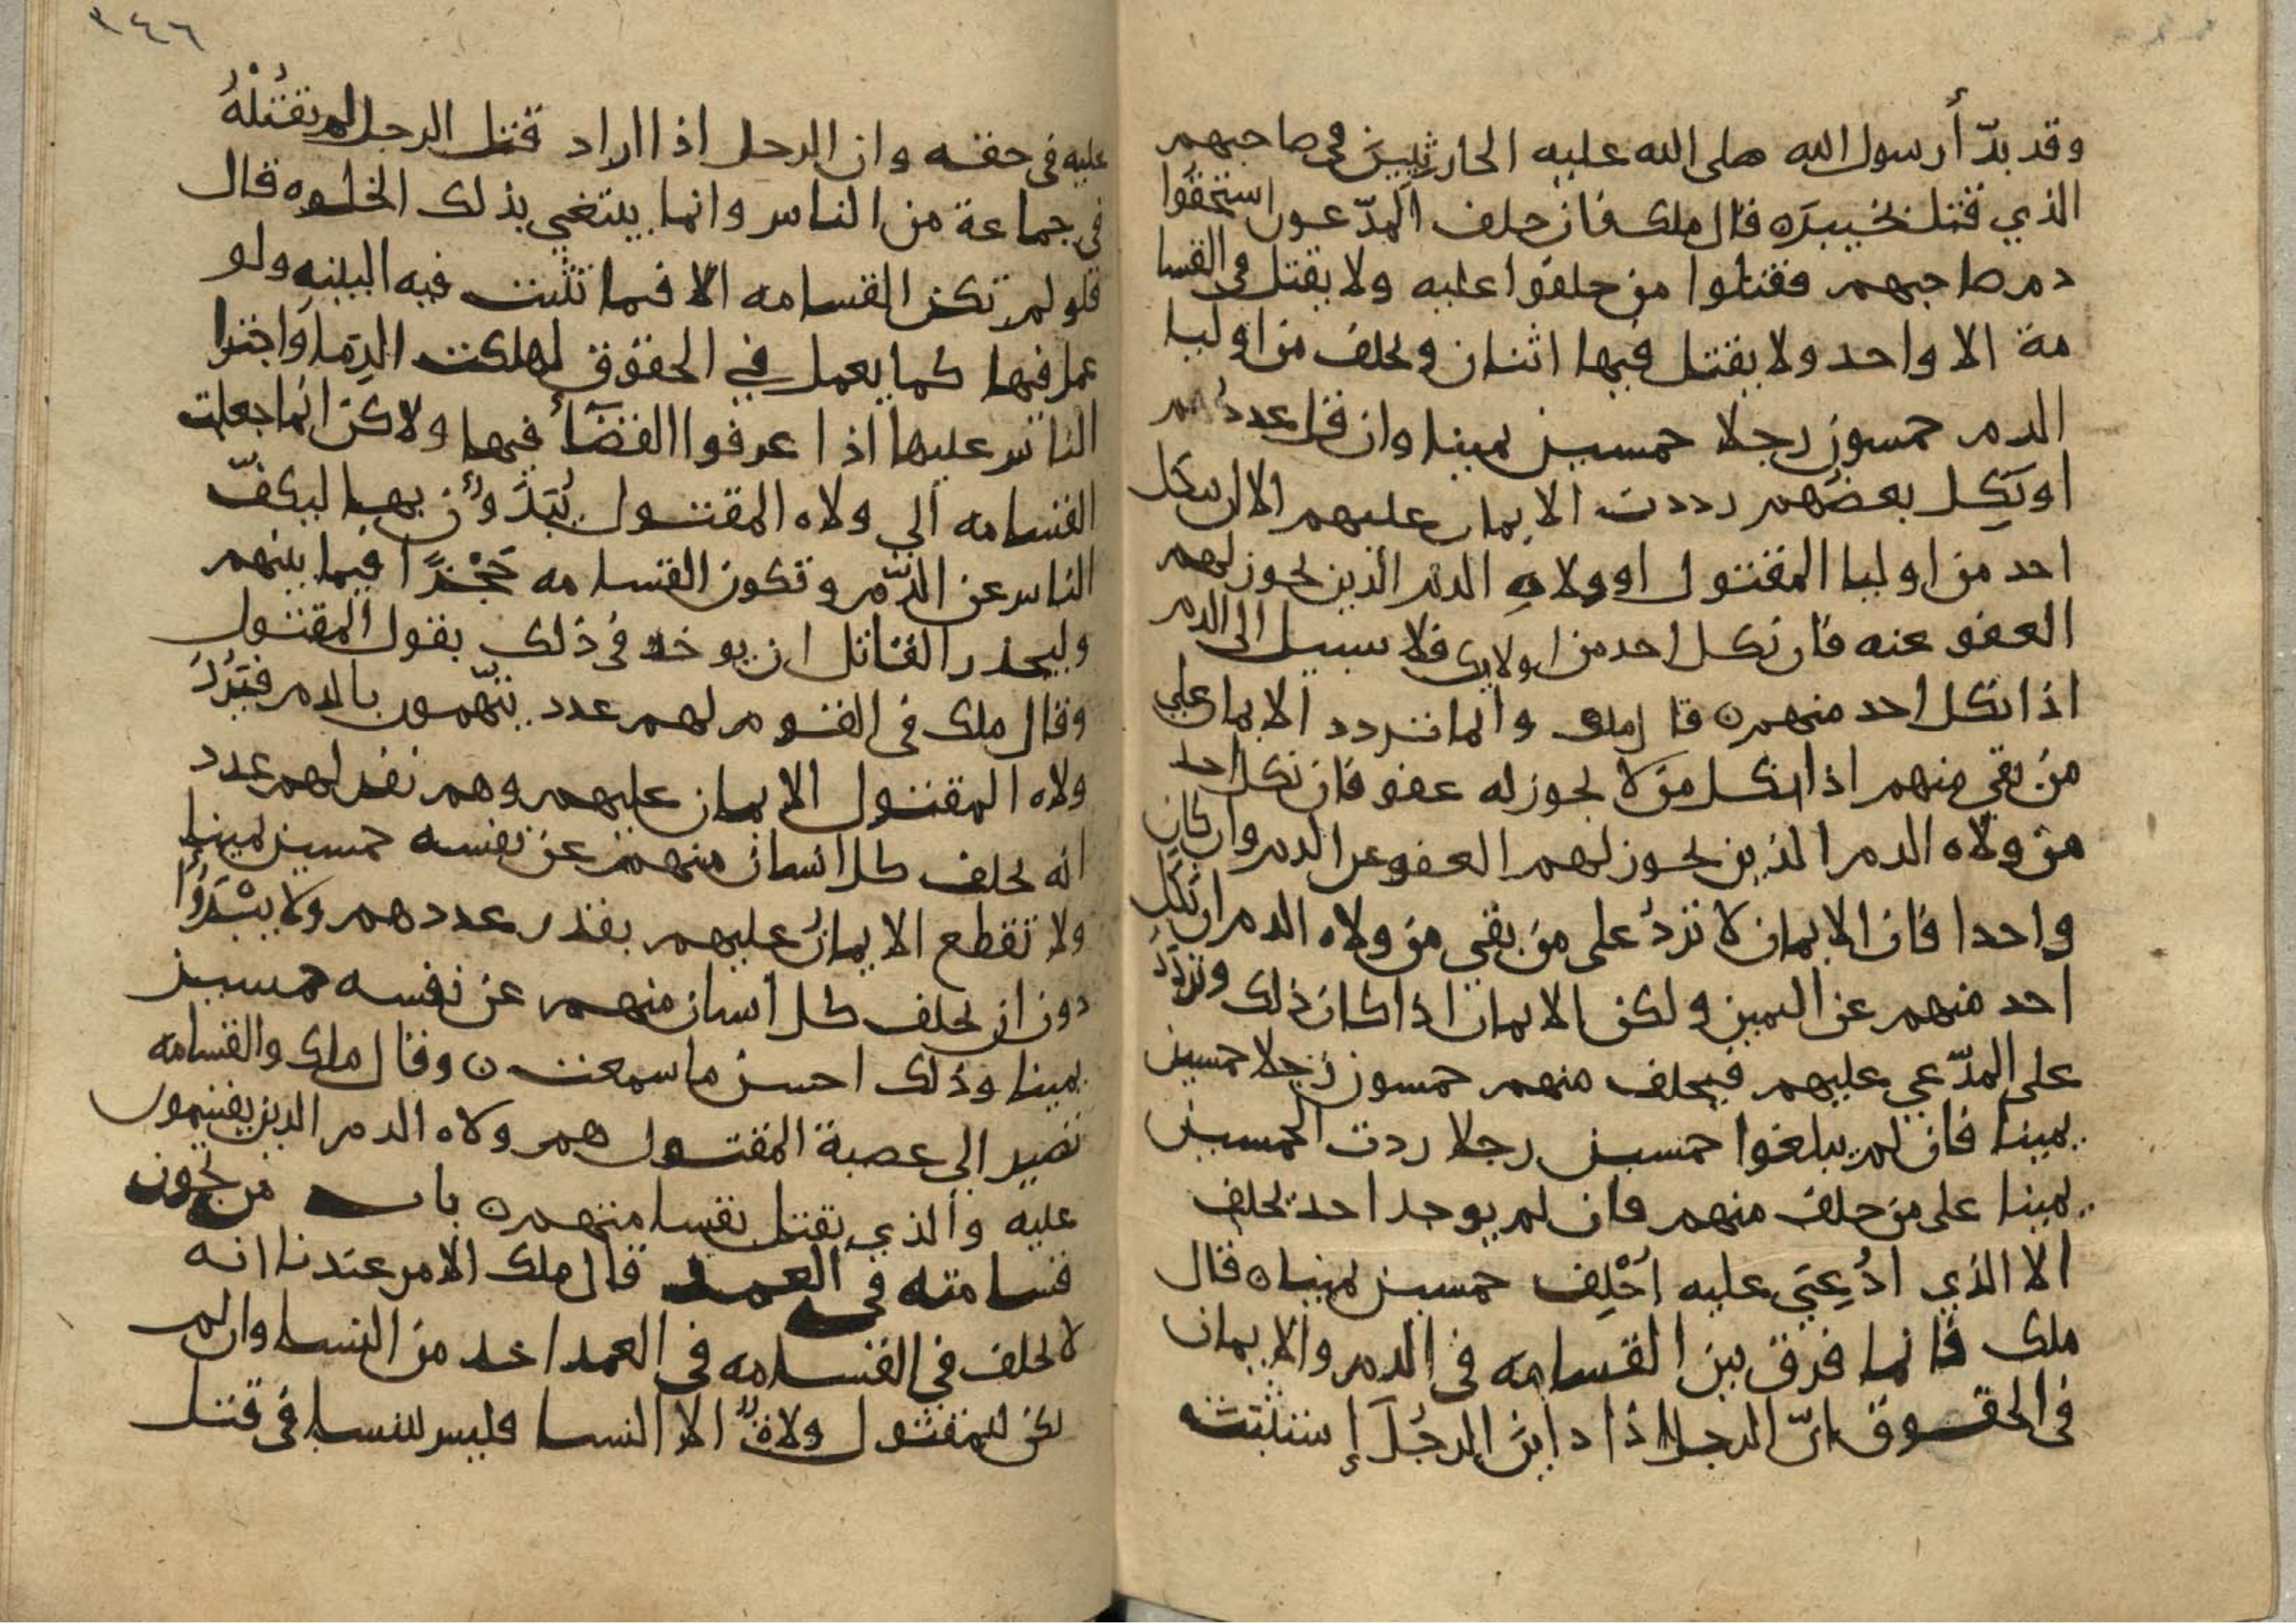 وقد بدّأ رسول الله صلى الله عليه الحارثيين في صاحبهم
الذي قتل بخيبره قال ملك فان حلف المدّعون استحقوا
دم صاحبهم فقتلوا من حلفوا عليه ولا يقتل في القسا
مة الا واحد ولا يقتل فيها اثنان ويحلف من اوليا
الدم خمسون رجلا خمسين يمينا وان قل عددهم
او نكل بعضهم رددت الايمان عليهم الا ان ينكل
احد من اوليا المقتول او ولاه الدم الذين يجوز لهم
العفو عنه فان نكل احد من اولايك فلا سبيل الى الدم
اذا نكل احد منهم ٥ قال ملك وانما تردد الايمان على
من بقي منهم اذا نكل من لا يجوز له عفو فان نكل احد
من ولاه الدم الذين يجوز لهم العفو عن الدم وان كان
واحدا فان الايمان لا تردّ على من بقي من ولاه الدم ان نكل
احد منهم عن اليمين ولكن الايمان اذا كان ذلك وتردّد
على المدّعي عليهم فيحلف منهم خمسون رجلا خمسين
يمينا فان لم يبلغوا خمسين رجلا ردت الخمسين
يمينا على من حلف منهم فان لم يوجد احد يحلف
الا الذي ادُعِيَ عليه احْلِف خمسين يمينا ٥ قال
ملك فانما فرق بين القسامه في الدم والايمان
في الحقوق انّ الرجل اذا داين الرجُلَ إستثبتَ
٣٤٦
عليه في حقه وان الرجل اذا اراد قتل الرجل لم يقتُلْهُ
في جماعة من الناس وانما يبتغي بذلك الخلوه قال
فلو لم تكن القسامه الا فيما تثبت فيه البينه ولو
عمل فيها كما يعمل في الحقوق لهلكت الدِمآ واجترا
الناس عليها اذا عرفوا القضآ فيها ولاكن انما جعلت
القسامه الي ولاه المقتول يُبَدَّوُن بها ليكفّ
الناس عن الدّم وتكون القسامه حَجْزًا فيما بينهم
وليحذر القاتل ان يوخذ في ذلك بقول المقتول
وقال ملك في القوم لهم عدد يتّهمون بالدم فيَرُدّ
ولاه المقتول الايمان عليهم وهم نفر لهم عدد
انه يحلف كل انسان منهم عن نفسه خمسين يمينا
ولا تقطع الايمانُ عليهم بقدر عددهم ولا يبْدَوُا
دون ان يحلف كل انسان منهم عن نفسه خمسين
يمينا وذلك احسن ما سمعت ٥ وقال ملك والقسامه
تصير الى عصبة المقتول هم ولاه الدم الذين يقتسمون
عليه والذي يقتل بقسامتهم ٥ باب من تجوز
قسامته في العمد قال ملك الامر عندنا انه
لا يحلف في القسامه في العمد احد من النسا وان لم
يكن للمقتول ولاةٌ الا النسا فليس للنسا في قتل